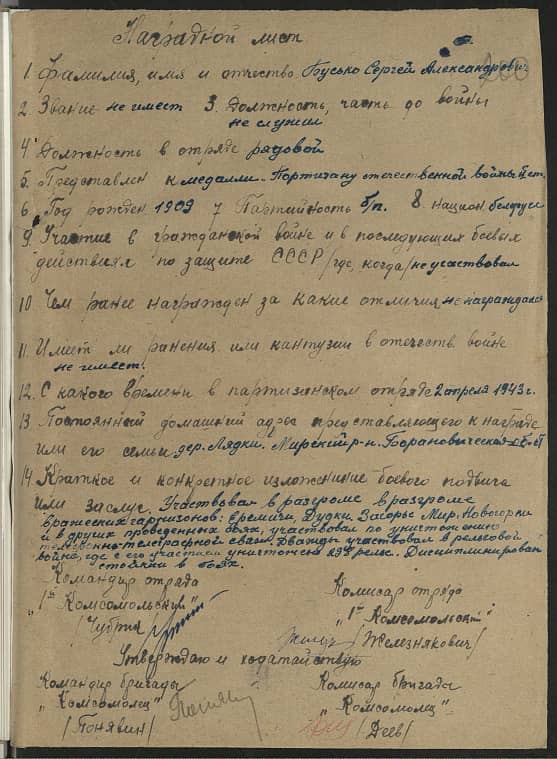 200
Наградной лист
1. Фамилия, имя и отчество Бусько Сергей Александрович
2. Звание не имеет 3. Должность, часть до войны
не служил
4. Должность в отряде рядовой
5. Представлен к медали "Партизану отечественной войны II ст.
6. Год рожден 1909 7 Партийность б/п. 8. национ белорус
9. Участие в гражданской войне и в последующих боевых
действиях по защите СССР /где, когда/ не участвовал
10 Чем ранее награжден за какие отличия не награждался
11. Имеет ли ранения или кантузии в отечеств. войне
не имеет.
12. С какого времени в партизанском отряде 2 апреля 1943 г.
13 Постоянный домашний адрес представляющего к награде
или его семьи дер. Лядки. Мирский р-н. Барановическая обл
14 Краткое и конкретное изложение боевого подвига
или заслуг. Участвовал в разгроме в разгроме
вражеских гарнизонов: Еремичи, Дудки, Загорье, Мир,
и в других проведенных боях, участвовал по уничтожению
телефонно-телеграфной связи. Дважды участвовал в рельсовой
войне, где с его участием уничтожена 29 рельс. Дисциплинирован
стойкий в боях.
Командир отряда
"1й Комсомольский"
/Чубрик/
Комиссар отряда
"1й Комсомольский"
/Железнякович/
Утверждаю и ходатайствую
Командир бригады
"Комсомолец"
/Понявин/
Комисар бригады
"Комсомолец"
/Деев/